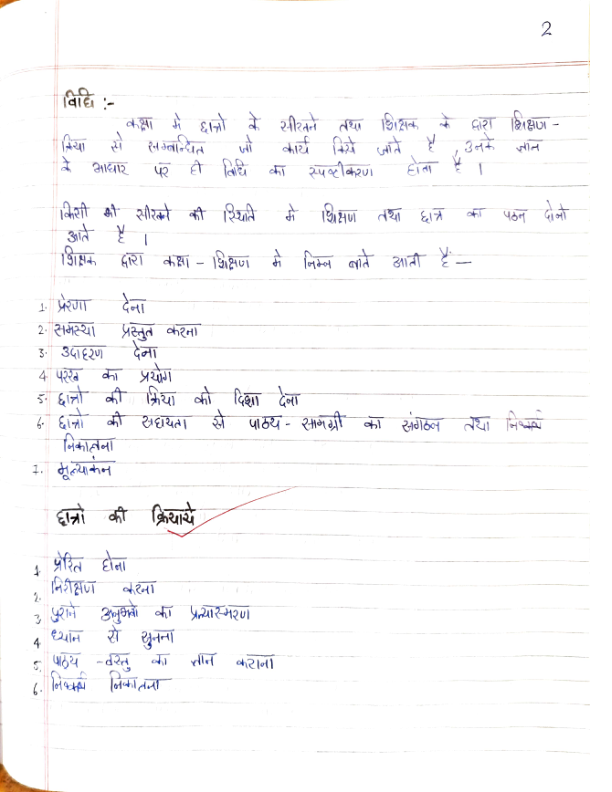 2
विधि :-
कक्षा मे छात्रो के सीखने तथा शिक्षक के द्वारा शिक्षण -
क्रिया से सम्बन्धित जो कार्य किये जाते है , उनके ज्ञान
के आधार पर ही विधि का स्पष्टीकरण होता है ।
किसी भी सीखने की स्थिति मे शिक्षण तथा छात्र का पठन दोनो
आते है ।
शिक्षक द्वारा कक्षा - शिक्षण मे निम्न बाते आती है —
1. प्रेरणा देना
2. समस्या प्रस्तुत करना
3. उदाहरण देना
4 परख का प्रयोग
5. छात्रो की क्रिया को दिशा देना
6. छात्रो की सहायता से पाठय - सामग्री का संगठन तथा निष्कर्ष
निकालना
7. मूल्याकंन
छात्रो की क्रियाये
1 प्रेरित होना
2. निरीक्षण करना
3 पुराने अनुभवो का प्रत्यास्मरण
4 ध्यान से सुनना
5. पाठय - वस्तु का ज्ञान कराना
6. निष्कर्ष निकालना